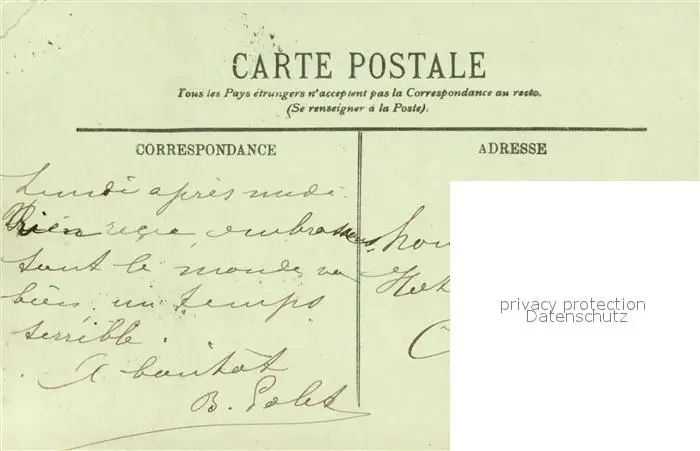 CARTE POSTALE
Tous les Pays étrangers n'acceptent pas la Correspondance au recto.
(Se renseigner à la Poste).
CORRESPONDANCE
ADRESSE
Lundi après midi.
Rien reçu embrassons
tout le monde va
bien, un temps
terrible.
A bientôt
B.
privacy protection
Datenschutz